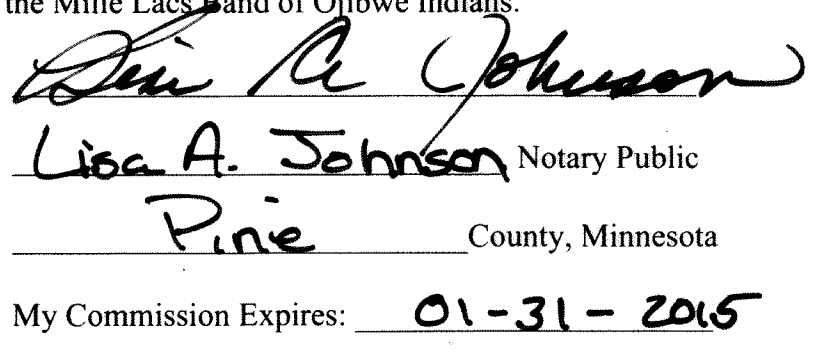 the Mille Lacs Band of Ojibwe Indians.
Lisa A Johnson
Lisa A. Johnson Notary Public
Pine County, Minnesota
My Commission Expires: 01-31-2015